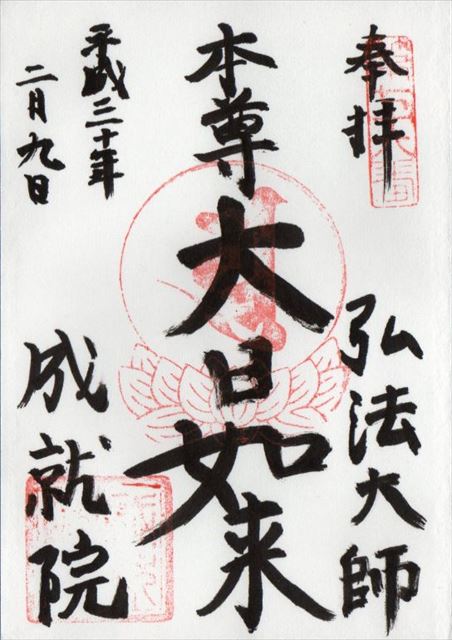 奉拝
弘法大師
本尊大日如来
平成三十年
二月九日
成就院